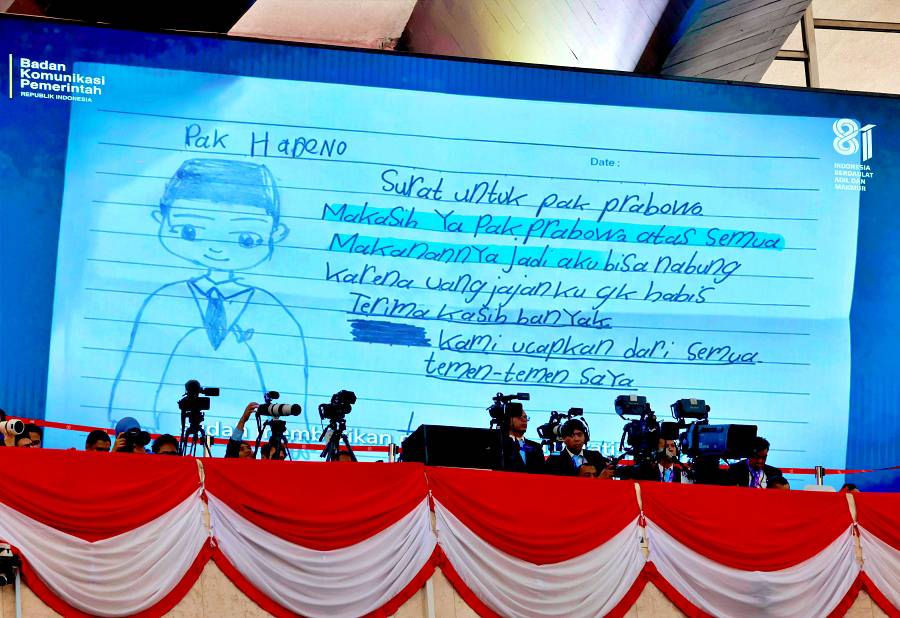 Badan
Komunikasi
Pemerintah
REPUBLIK INDONESIA
81
INDONESIA
BERDAULAT
ADIL DAN
MAKMUR
Pak Hapeno
Date :
Surat untuk pak prabowo
Makasih Ya Pak prabowo atas semua
Makanannya jadi aku bisa nabung
karena uang jajanku gk habis
Terima kasih banyak
kami ucapkan dari semua
temen-temen saya